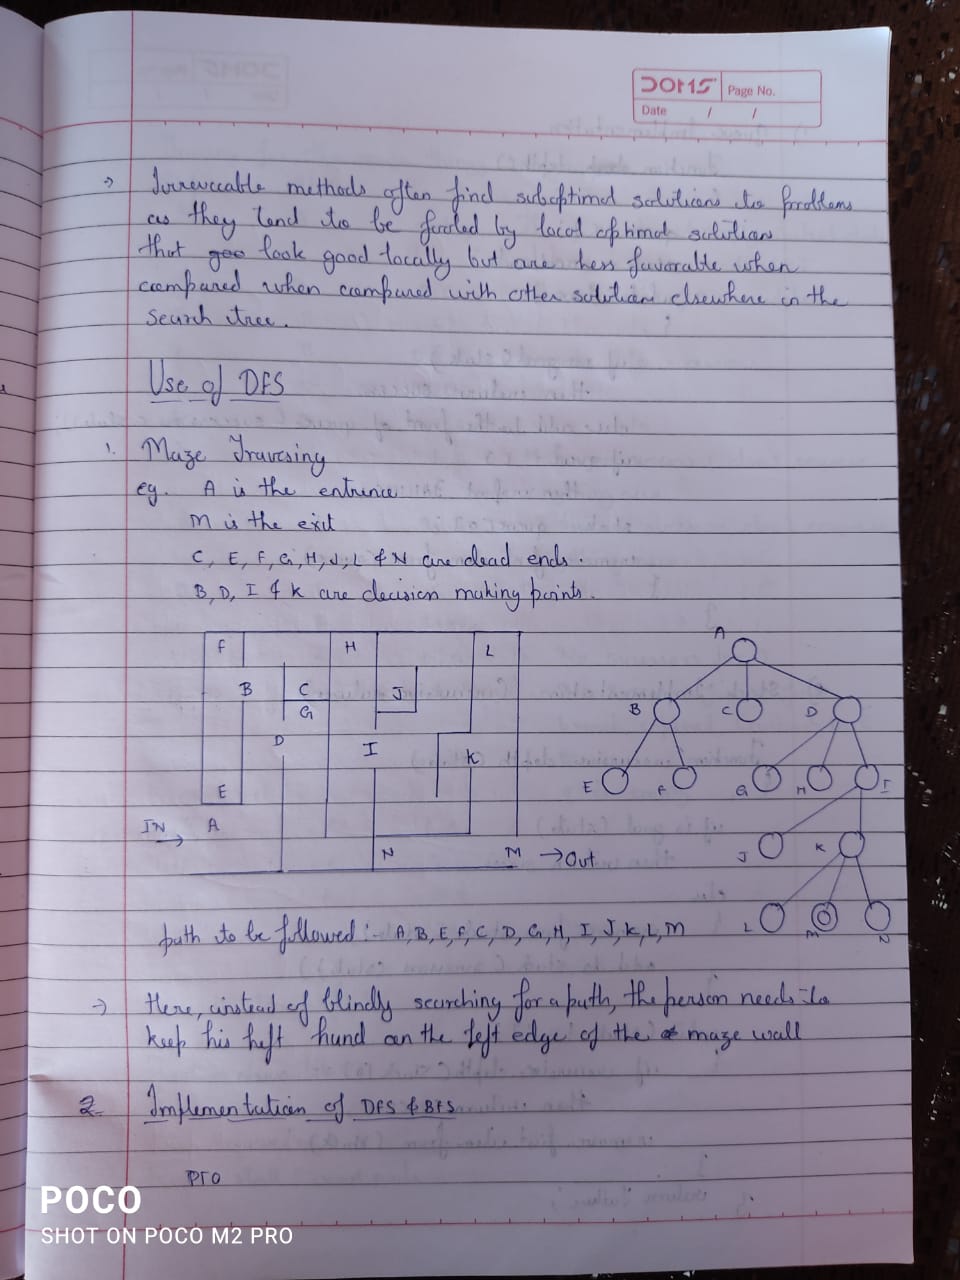 DOMS
Page No.
Date / /
→ Irrevocable methods often find suboptimal solutions to problems
as they tend to be fooled by local optimal solution
that look good locally but are less favorable when
compared when compared with other solution elsewhere in the
search tree.
Use of DFS
1. Maze Traversing
eg. A is the entrence
M is the exit
C, E, F, G, H, J, L & N are dead ends.
B, D, I & K are decision making points.
F H L
B C J
G
D I K
E
IN → A
N M → Out
A
B C D
E F G H I
J K
L M N
path to be followed :- A, B, E, F, C, D, G, H, I, J, K, L, M
→ Here, instead of blindly searching for a path, the person needs to
keep his left hand on the left edge of the maze wall
2. Implementation of DFS & BFS
PTO
POCO
SHOT ON POCO M2 PRO